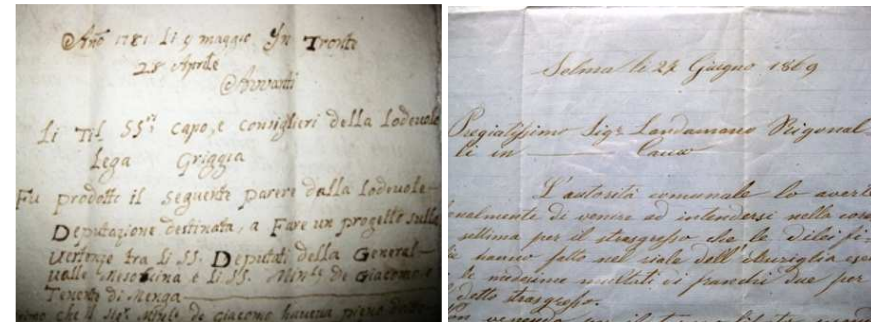 Año 1781 li 9 maggio In Tronte
28 Aprile
Avvanti
Li Til SS.ri Capo, e consiglieri della Lodevole
Lega Griggia
Fu prodotto il seguente parere dalla Lodevole
Deputazione destinata, a Fare un progetto sulla
vertenza tra li SS. Deputati della General
valle Mesolcina è li SS. Minle. de Giacomo e
Tenente di Menga
che il Sigr. Minle. de Giacomo haveva
Selma li 24 Giugno 1869
Pregiatissimo Sigr. Landamano Rigonal
li in Cauco
L'autorità comunale lo averte
di venire ad intendersi nella
settima per il strasgresso che le di lei fi-
hanno fatto nel riale dell'
le medesime multati di franchi due per
detto strasgresso.
venendo per il